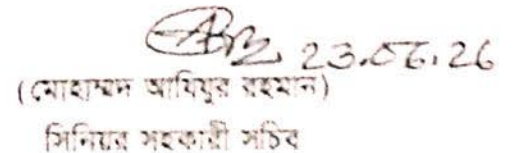 23.06.26
(মোহাম্মদ আযিযুর রহমান)
সিনিয়র সহকারী সচিব